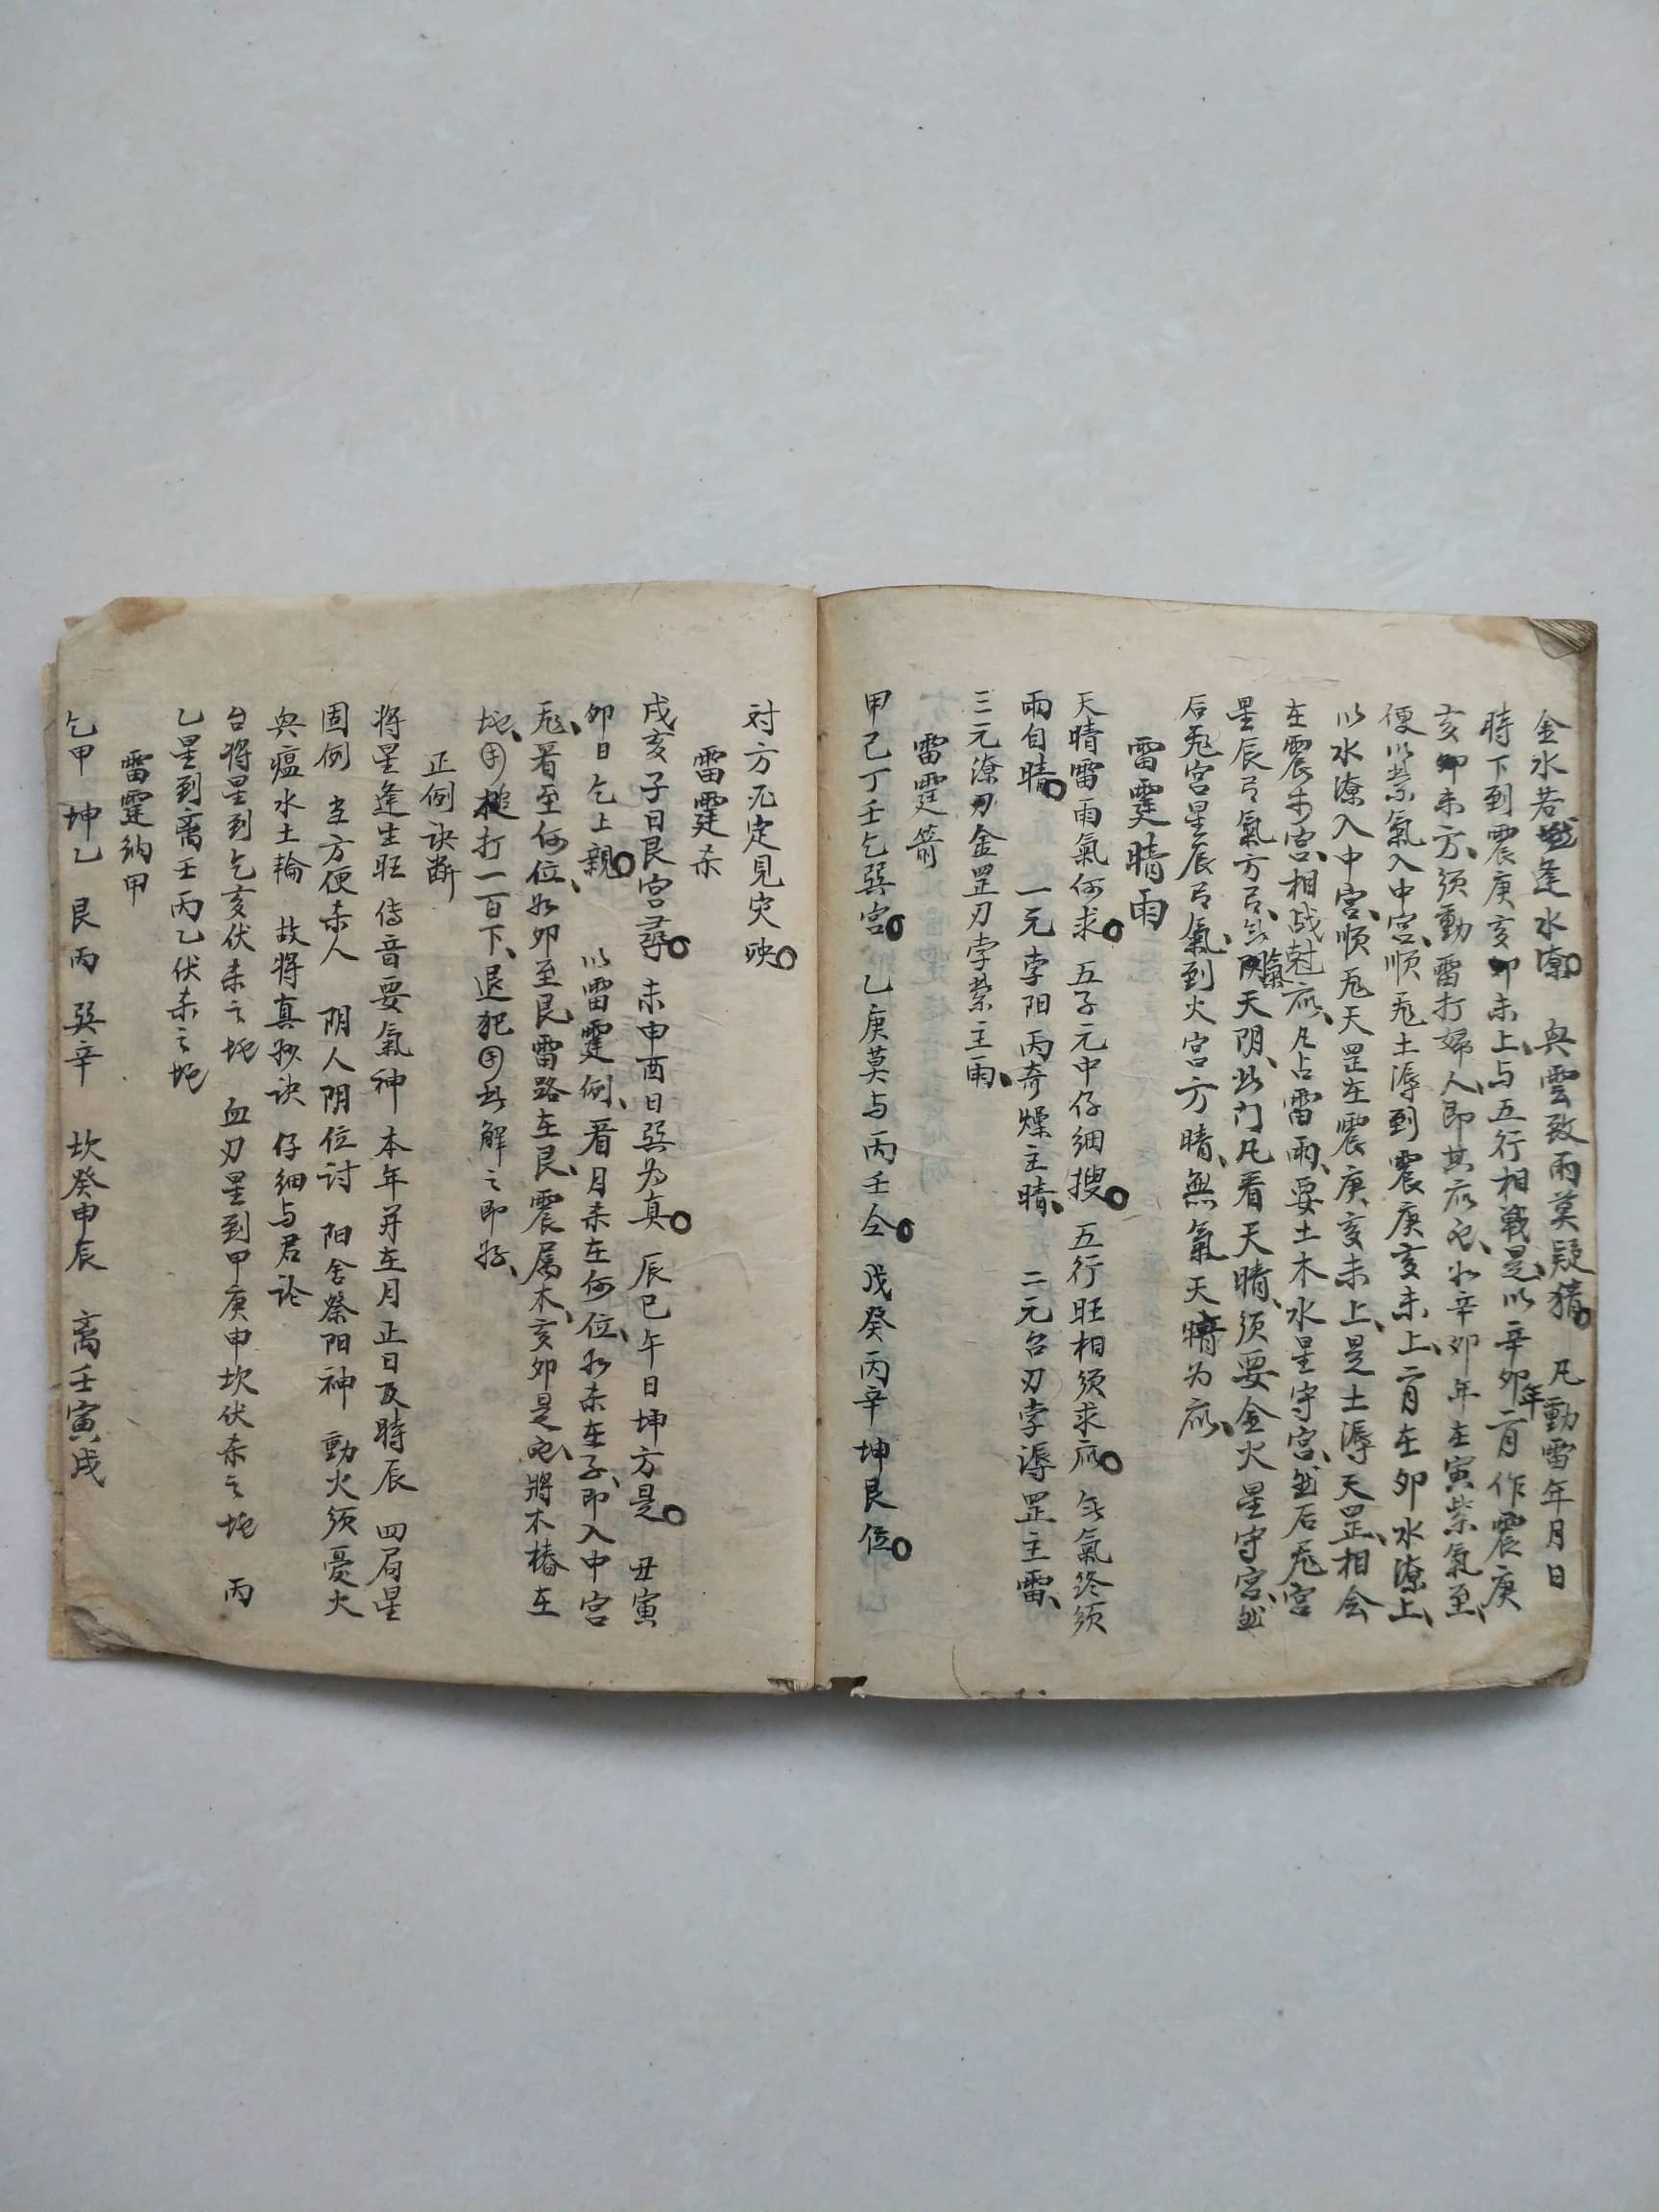 金水若逢水潦 與雲致雨莫疑猜 凡動雷年月日
時下到震庚亥卯未上与五行相戰是以辛卯年二月作震庚
亥卯未方须動雷打婦人即其应也如辛卯年在寅紫氣至
便以紫氣入中宮順飛土溽到震庚亥未上二月在卯水潦上
以水潦入中宮順飛天罡在震庚亥未上是土溽天罡相会
在震木宮相战尅应凡占雷雨要土木水星守宮然后飛宮
星辰弓氣方弓氣天阴此门凡看天晴须要金火星守宮然
后飛宮星辰弓氣到火宮方晴無氣天晴为应
雷霆晴雨
天晴雷雨氣何求 五子元中仔细搜 五行旺相须求应 氣终须
雨自晴 一元孛阳丙奇燥主晴 二元台刃孛溽罡主雷
三元潦刃金罡刃孛紫主雨
雷霆箭
甲己丁壬乞巽宮 乙庚莫与丙壬仝 戊癸丙辛坤艮位
对方冗定見灾殃
雷霆杀
戌亥子日艮宮尋 未申酉日巽为真 辰巳午日坤方是 丑寅
卯日乞上親 以雷霆例看月杀在何位如杀在子即入中宮
飛看至何位如卯至艮雷路在艮震属木亥卯是也將木樁在
地 槌打一百下退犯 解之即好
正例诀断
将星逢生旺 侍音要氣神 本年并在月 正日及時辰 四局星
固例 主方便杀人 阴人阴位讨 阳舍祭阳神 動火须憂火
與瘟水土輪 故將真妙诀 仔细与君论
台将星到乞亥伏杀之地 血刃星到甲庚申坎伏杀之地 丙
乙星到离壬丙乙伏杀之地
雷霆纳甲
乞甲 坤乙 艮丙 巽辛 坎癸申辰 离壬寅戌